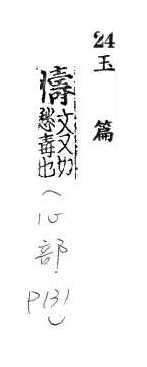 24 玉篇
懤 丈又切
愁毒也
(心部
P131)